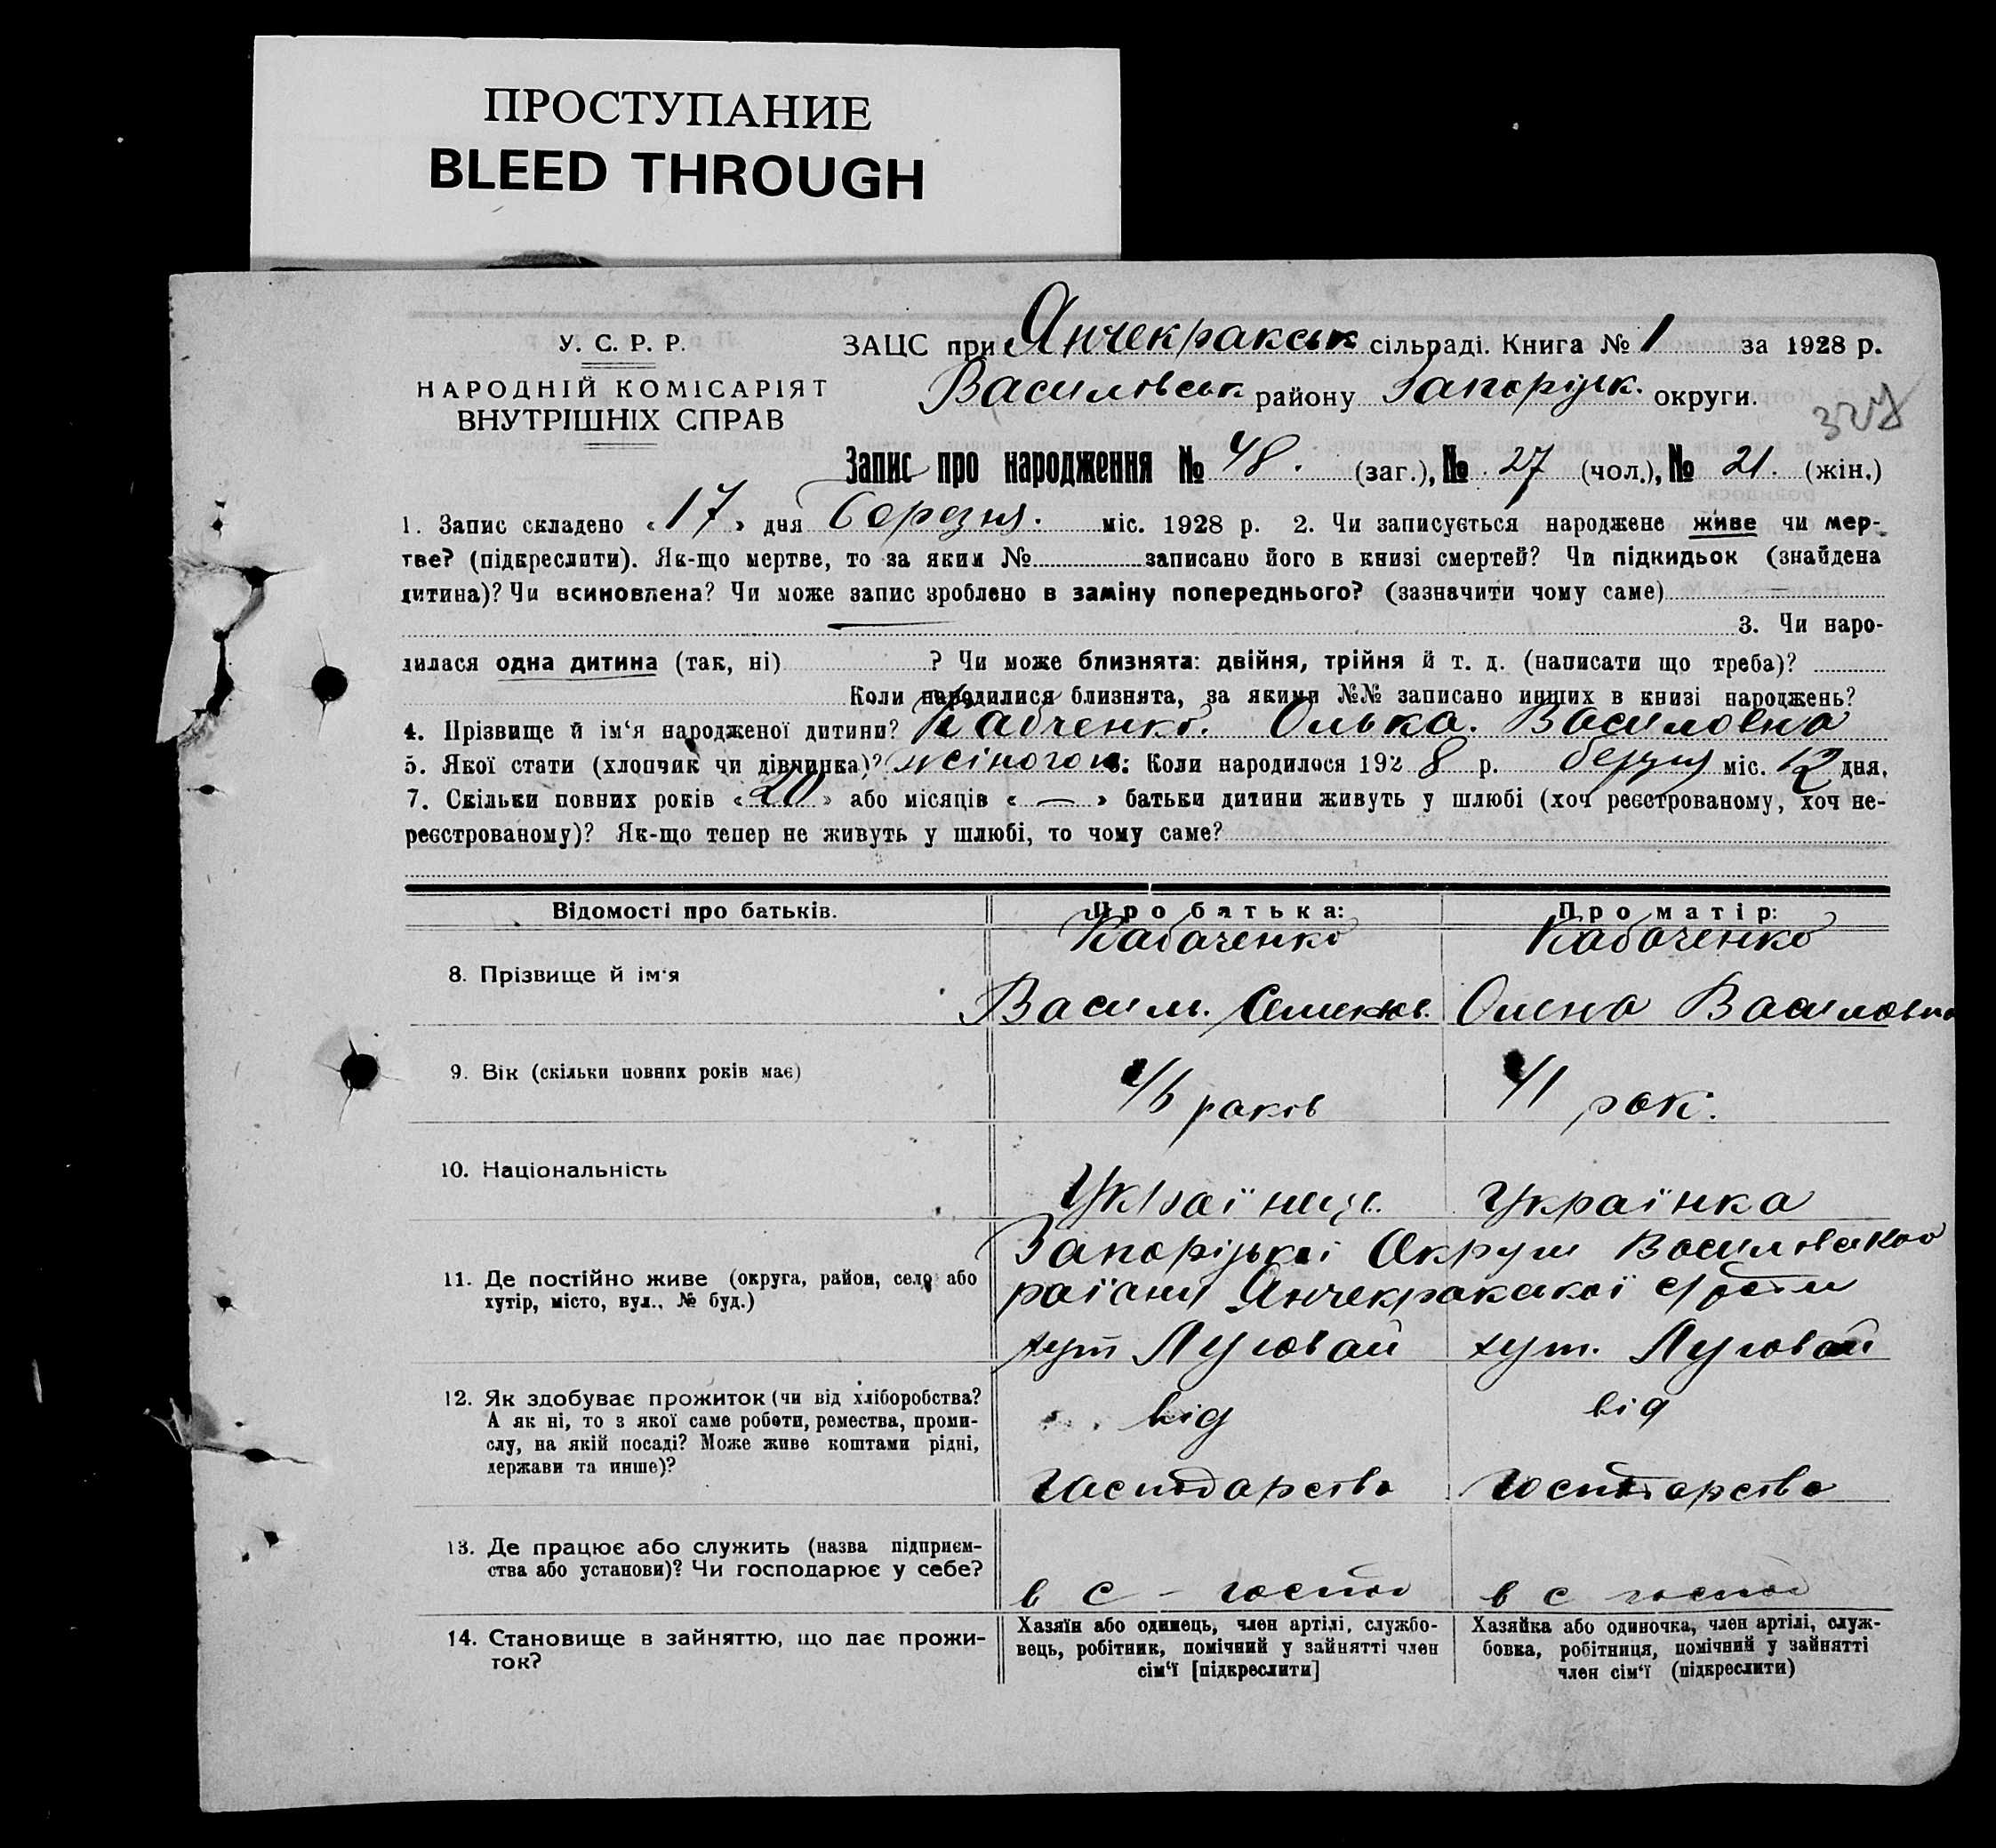 ПРОСТУПАНИЕ
BLEED THROUGH
У. С. Р. Р.
НАРОДНІЙ КОМІСАРІЯТ
ВНУТРІШНІХ СПРАВ
ЗАЦС при Янчекракськ сільраді. Книга № 1 за 1928 р.
Василівськ району Запоріжк. округи.
Запис про народження № 48. (заг.), № 27 (чол.), № 21. (жін.)
1. Запис складено «17» дня березня. міс. 1928 р. 2. Чи записується народжене живе чи мер-
тве? (підкреслити). Як-що мертве, то за яким № записано його в книзі смертей? Чи підкидьок (знайдена
дитина)? Чи всиновлена? Чи може запис зроблено в заміну попереднього? (зазначити чому саме)
3. Чи наро-
дилася одна дитина (так, ні) ? Чи може близнята: двійня, трійня й т. д. (написати що треба)?
Коли народилися близнята, за якими №№ записано инших в книзі народжень?
4. Прізвище й ім'я народженої дитини? Кабченко. Олька. Василовна
5. Якої стати (хлопчик чи дівчинка)? жіногои: Коли народилося 1928 р. міс. 12 дня.
7. Скільки повних років «20» або місяців « — » батьки дитини живуть у шлюбі (хоч реєстрованому, хоч не-
реєстрованому)? Як-що тепер не живуть у шлюбі, то чому саме?
Відомості про батьків. Про батька: Про матір:
8. Прізвище й ім'я
Кабаченко Кабаченко
Василь. Семенов. Олена Василовна
9. Вік (скільки повних років має)
46 раків 41 рок.
10. Національність
Українець Українка
11. Де постійно живе (округа, район, село або
хутір, місто, вул., № буд.)
Запоріжької Округи Василівської
раїону Янчекракської с/ради
хут Луговай хут. Луговай
12. Як здобуває прожиток (чи від хліборобства?
А як ні, то з якої саме роботи, ремества, проми-
слу, на якій посаді? Може живе коштами рідні,
держави та инше)?
від від
Господарства Господарства
13. Де працює або служить (назва підприєм-
ства або установи)? Чи господарює у себе?
в с - госпо в с госпо
14. Становище в зайняттю, що дає прожи-
ток?
Хазяїн або одинець, член артілі, службо-
вець, робітник, помічний у зайнятті член
сім'ї [підкреслити]
Хазяйка або одиночка, член артілі, служ-
бовка, робітниця, помічний у зайнятті
член сім'ї (підкреслити)